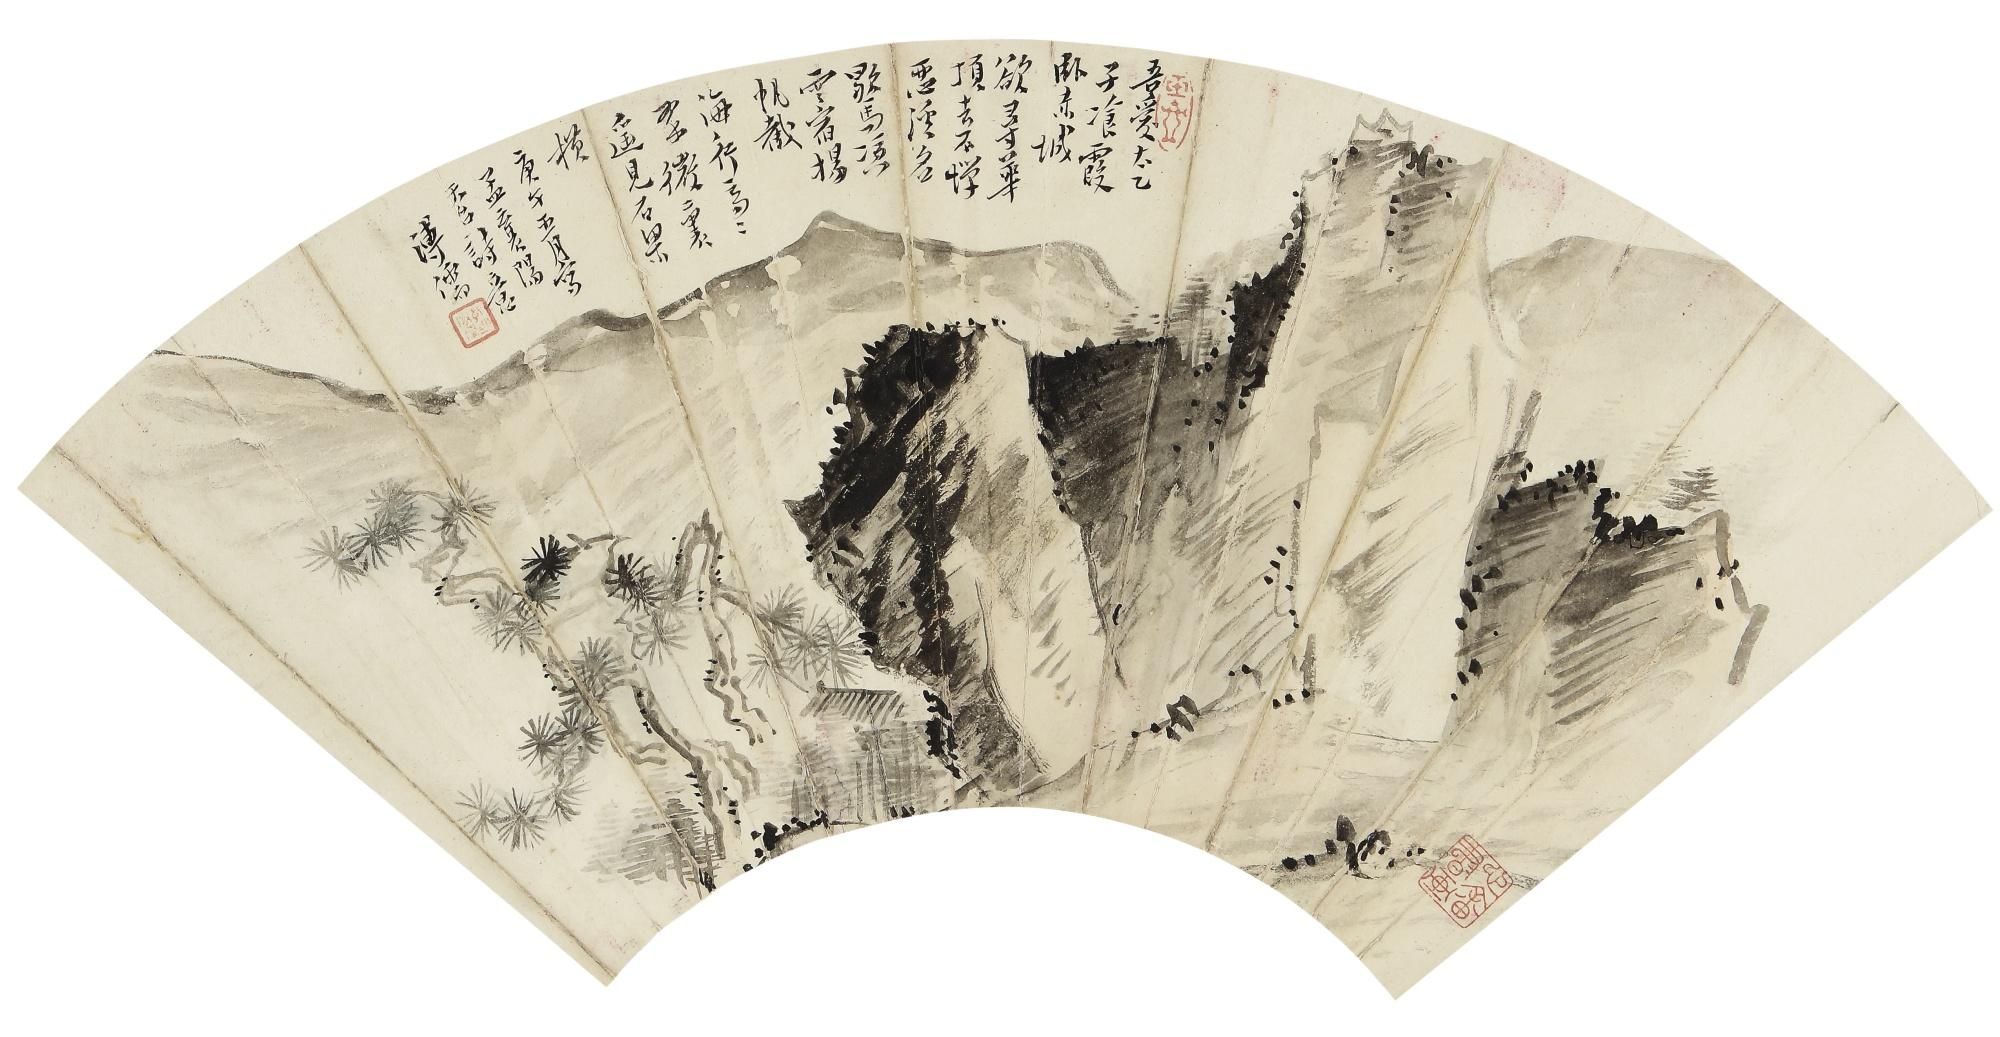 吾愛太乙
子飡霞
臥赤城
欲尋華
頂去不憚
惡溪名
歇馬憑
雲宿揚
帆截
海行高〻
翠微裏
遙見石梁
橫
庚午五月寫
孟襄陽
天台詩意
溥儒